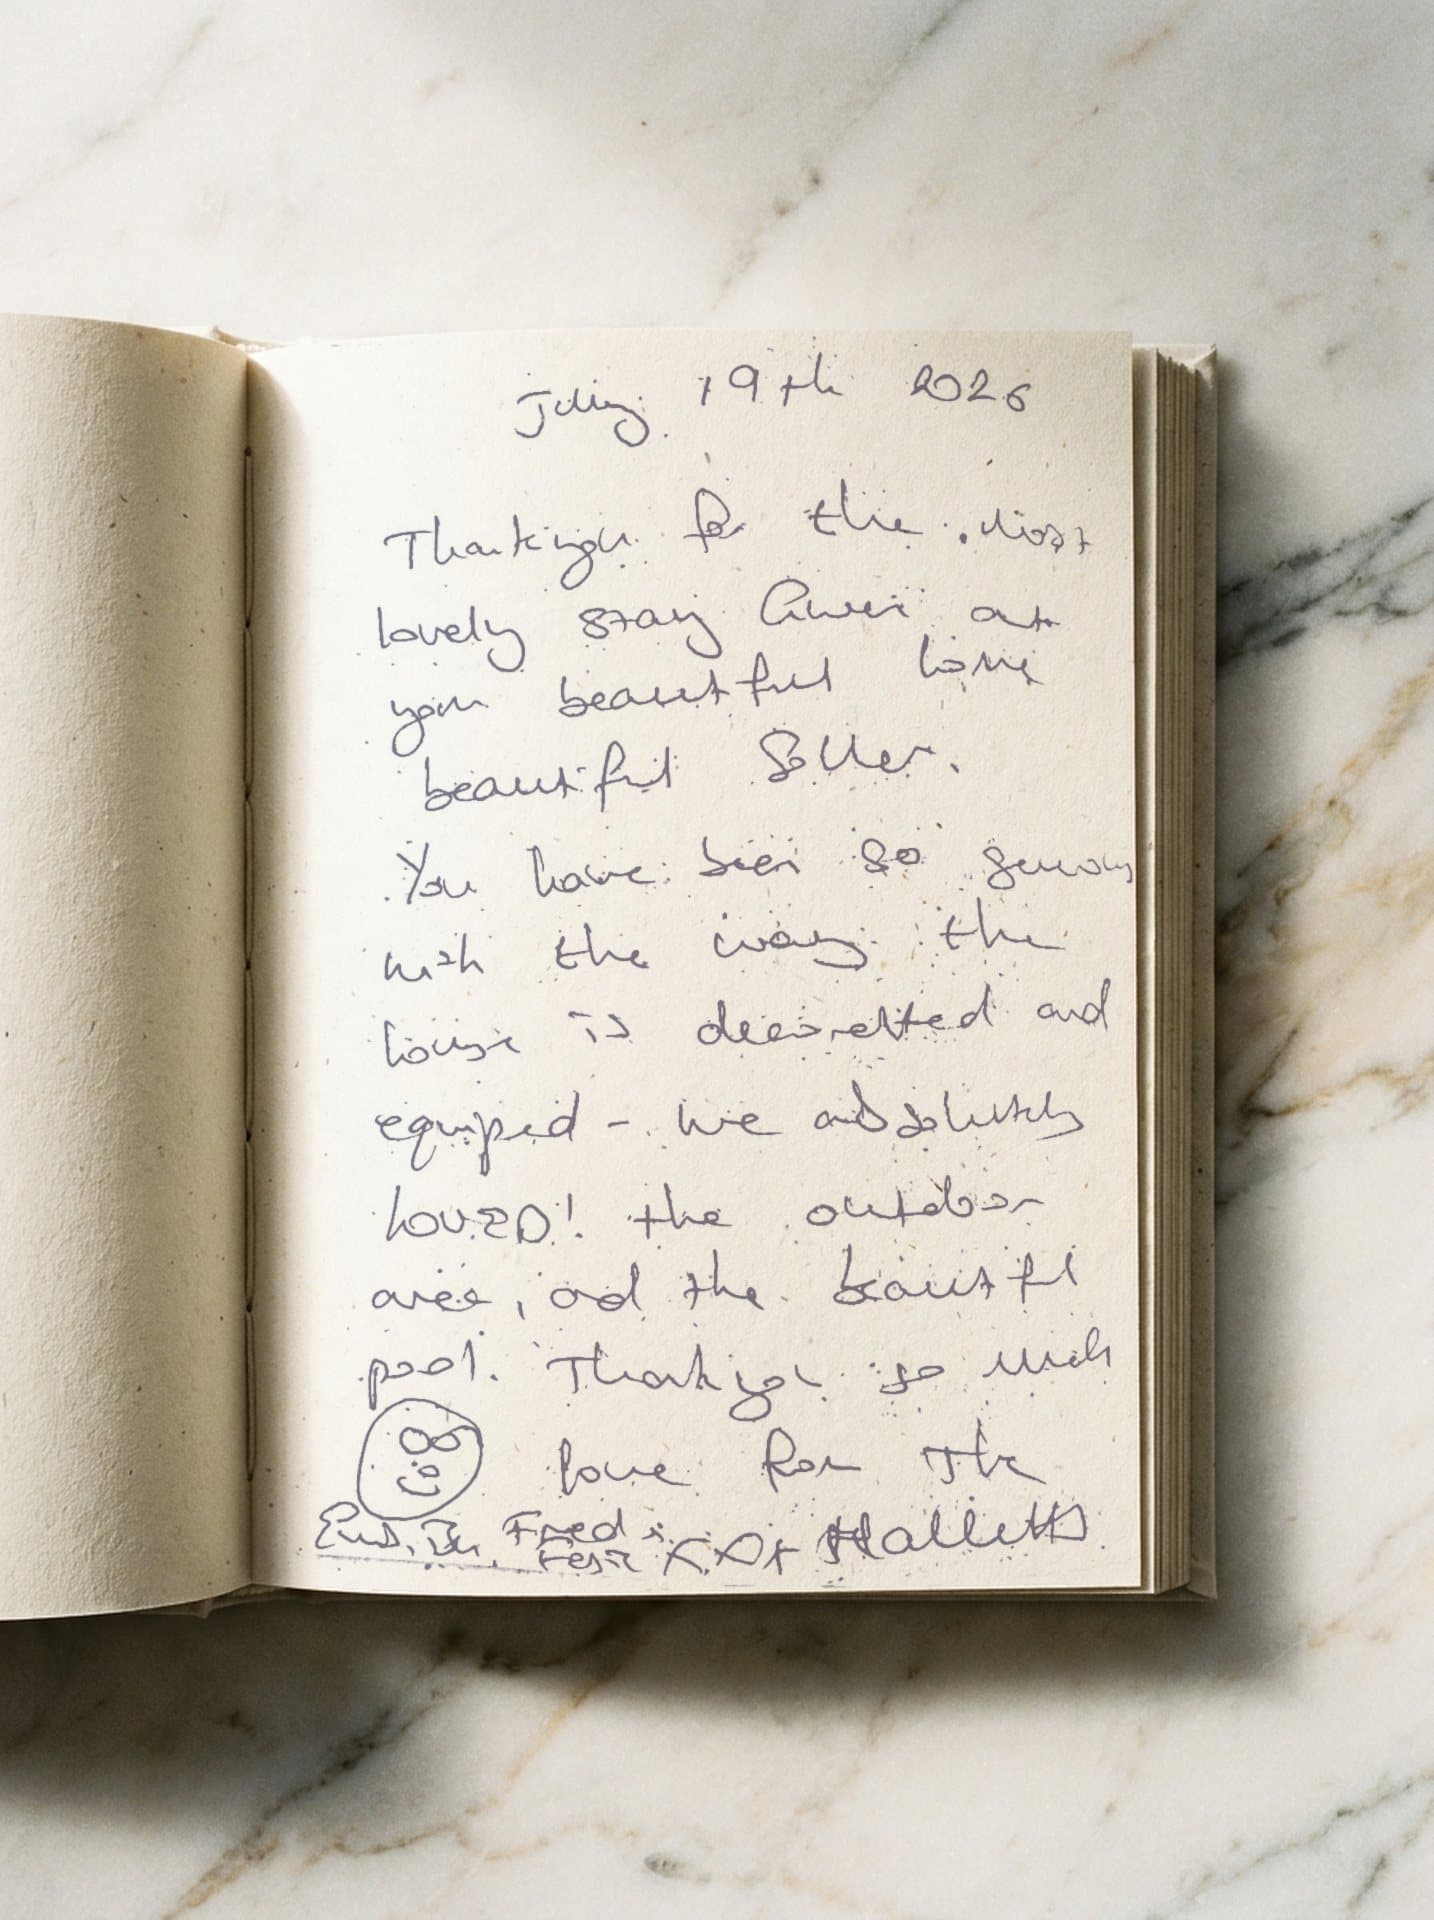 July 19th 2026
Thankyou for the most
lovely stay at
your beautiful home
beautiful Soller.
You have been so generous
with the way the
house is decorated and
equiped - we absolutely
LOVED! the outdoor
area, and the beautiful
pool. Thankyou so much
love from the
Fred
xxx Halletts